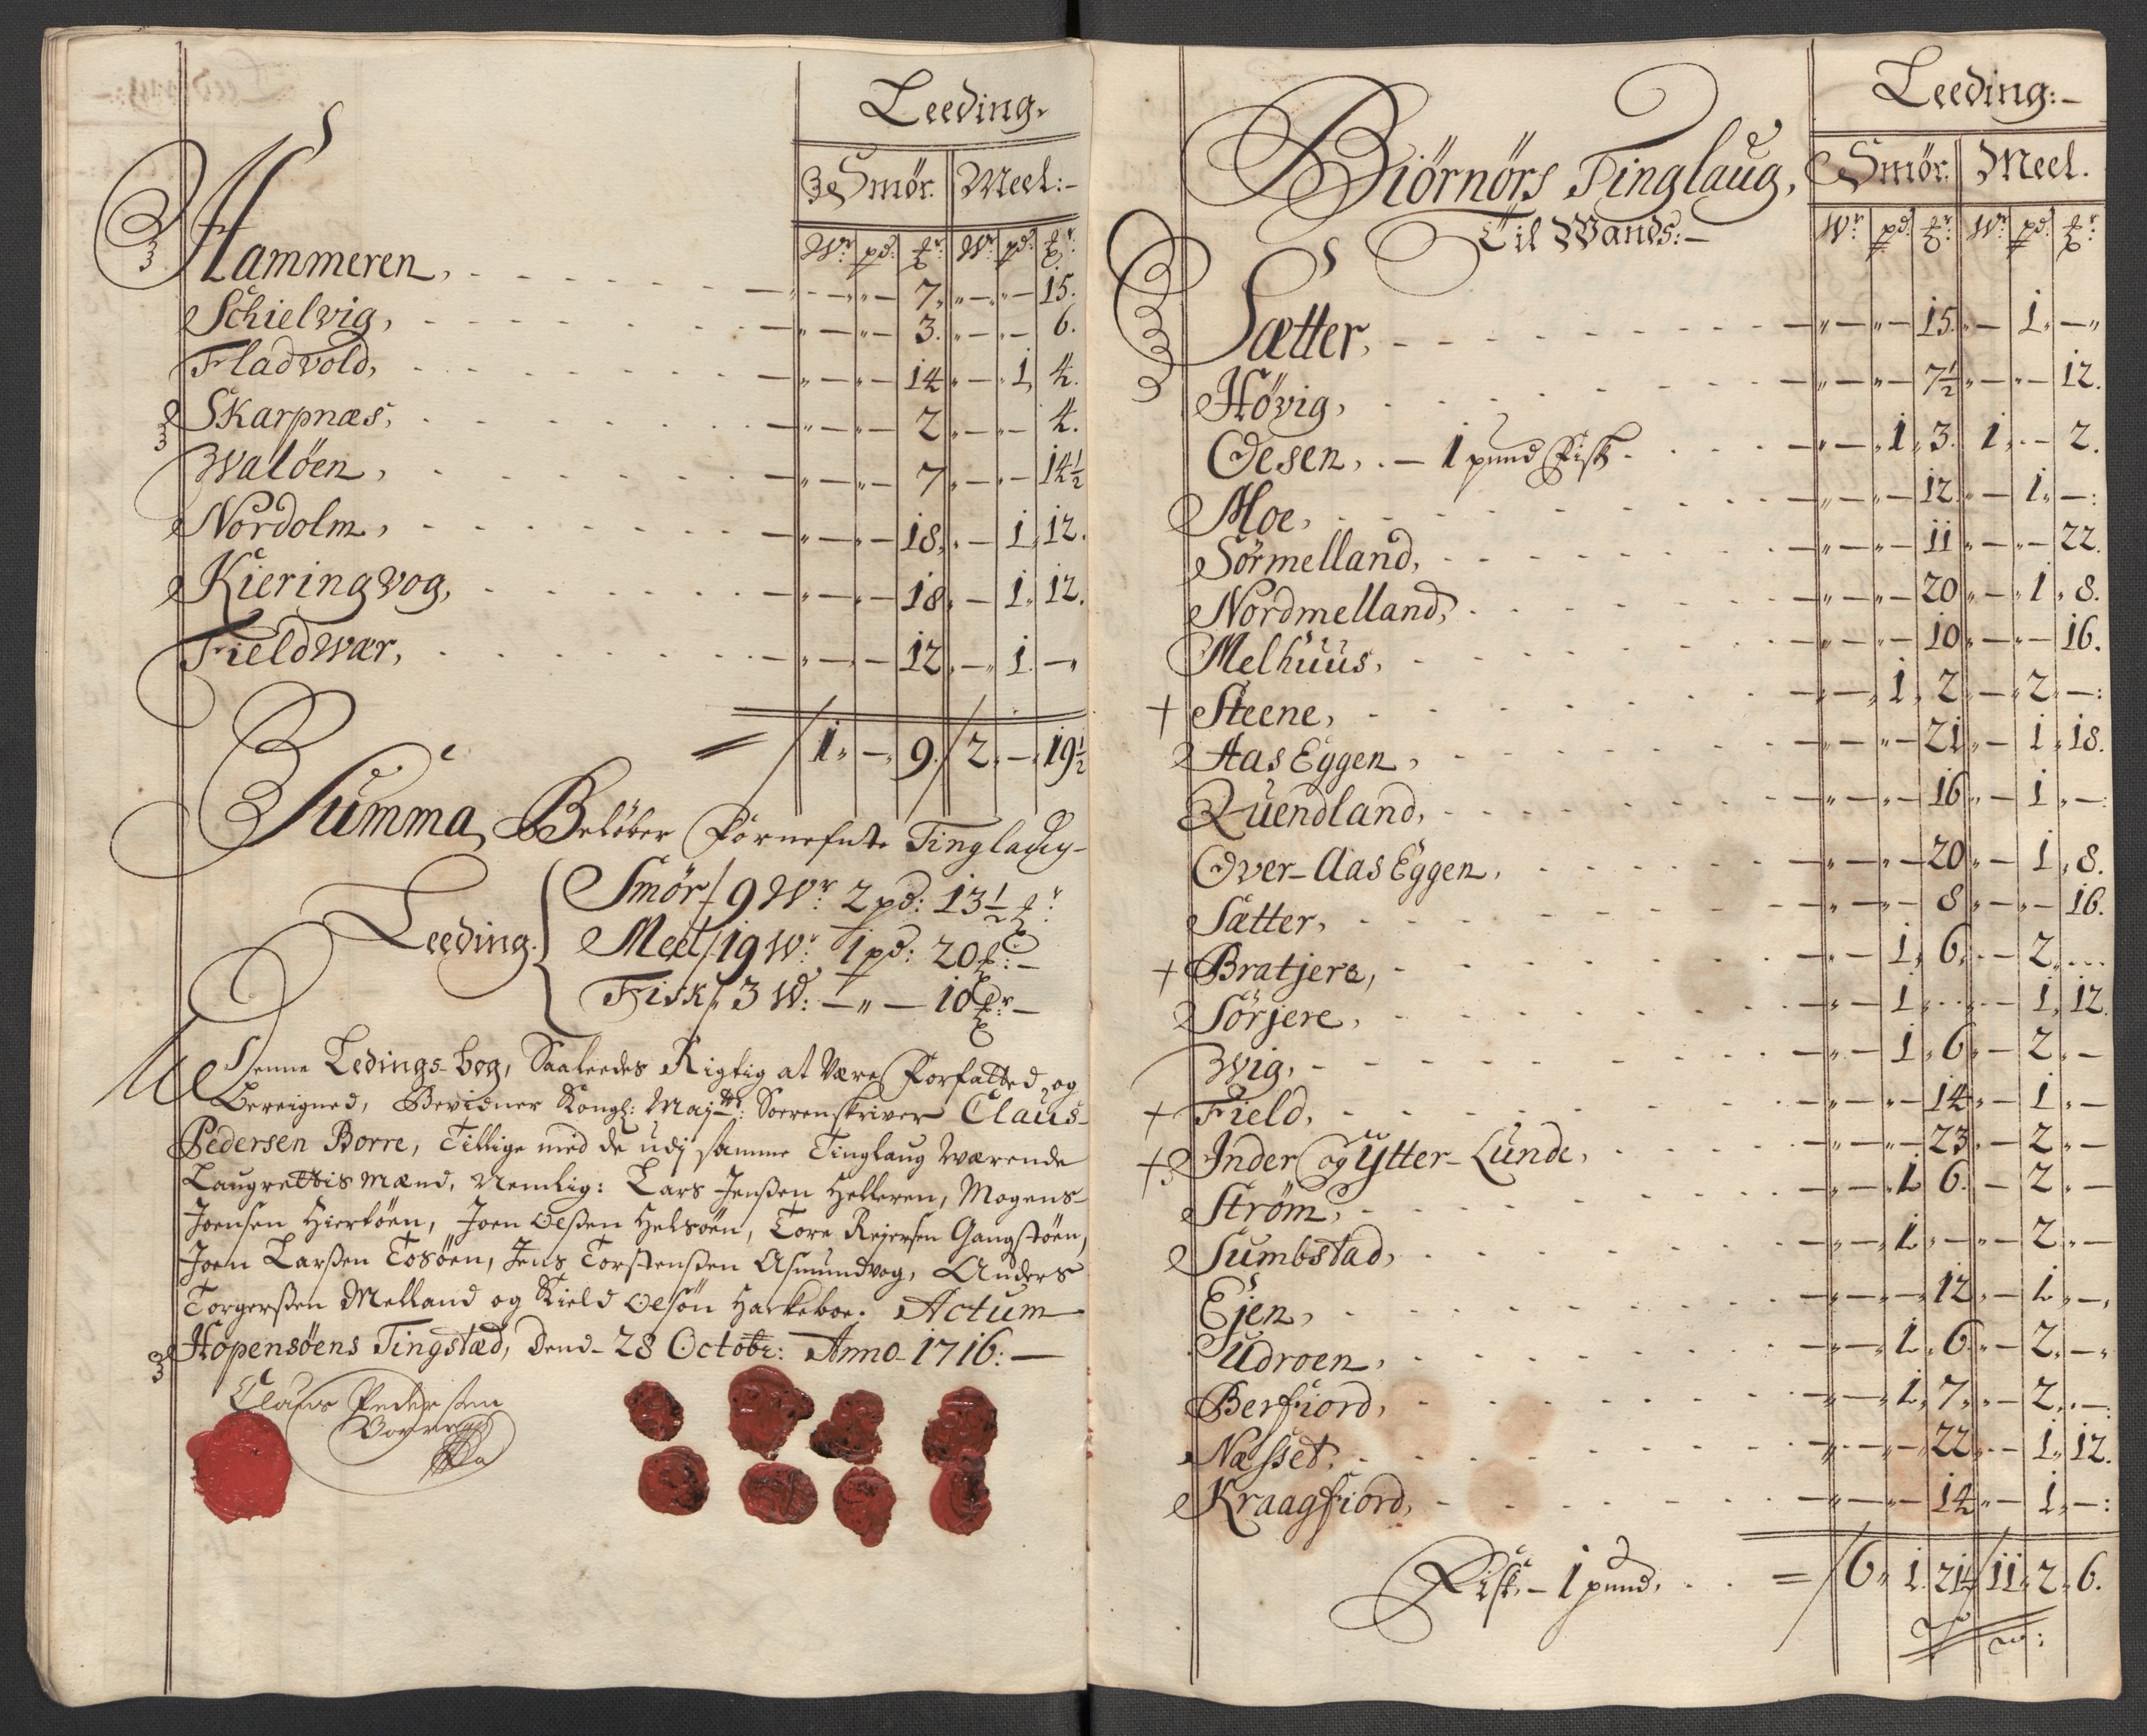 Leeding.
Smör. Meel:-
Wr: pd: ℔r: Wr: pd: ℔r:
Hammeren, " — " — 7, " — " — 15.
Schielvig, " — " — 3. " — " — 6.
Fladvold, " — " — 14 " — 1, 4.
Skarpnæs, " — " — 2 " — " — 4.
Waløen, " — " — 7 " — " — 14½
Nordolm, " — " — 18, " — 1, 12.
Kieringvog, " — " — 18, " — 1, 12.
Fieldwær, " — " — 12 " — 1. — "
= / 1, — 9. / 2. — 19½
Summa Belöber Förnefnte Tinglaug-
Leeding.
Smör / 9 Wr: 2 pd: 13½ ℔r:
Meel / 19 Wr: 1 pd: 20 ℔: —
Fisk / 3 W: — " — 10 ℔r: —
Denne Ledings-bog, Saaleedes Rigtig at Være Forfatted, og
Bereigned, Bevidner Kongl: Mayts: Sorenskriver Claus-
Pedersen Borre, Tillige med de udj samme Tinglaug Wærende
Laugrettis Mænd, Nemlig: Lars Jenssen Helleren, Mogens
Joensen Hiertöen, Joen Olssen Helsöen, Tore Rejersen Gangstöen,
Joen Larssen Tosöen, Jens Torstenssen Asmundvog, Anders
Torgerssen Melland og Kield Olsön Harkeboe. Actum
Hopensöens Tingstæd, Dend 28 Octobr: Anno 1716: —
Claus Pedersen
Borre
Leeding:-
Biörnörs Tinglaug,
Smör. Meel.
Til Wands:-
Wr: pd: ℔r: Wr: pd: ℔r:
Sætter, " — " — 15. " — 1, — "
Hövig, " — " — 7½ " — " — 12.
Oesen, . — 1 pund Fisk. " — 1, 3. 1, . — 2.
Moe, " — " — 12 " — 1, — :
Sörmelland, " — " — 11 " — " — 22.
Nordmelland, " — " — 20 " — 1, 8.
Melhuus, " — " — 10 " — " — 16.
+ Steene, " — 1, 2 " — 2, — :
Aas Eggen, " — " — 21 " — 1, 18.
Quendland, " — " — 16 " — 1, — :
Over-Aas Eggen, " — " — 20 " — 1, 8.
Sætter, " — " — 8 " — " — 16.
+ Bratjere, " — 1, 6, . — 2, ...
Sörjere, " — 1, . . . — 1, 12
Wig, " — 1, 6 " — 2, —
+ Field, " — " — 14 " — 1, —
+ Inder og Ytter-Lunde, " — " — 23 " — 2, —
Ström, " — 1, 6. — 2, —
Sumbstad, " — 1, — . — 2, —
Ejen, " — " — 12 " — 1, —,
Udroen, " — 1, 6. — 2, —,
Berfiord, " — 1, 7, " — 2, . —:
Næsset, " — " — 22 " — 1, 12.
Kraagfiord, " — " — 14 " — 1, — :
Fisk, - 1 pund, . . = / 6, 1. 21½ / 11, 2, 6.